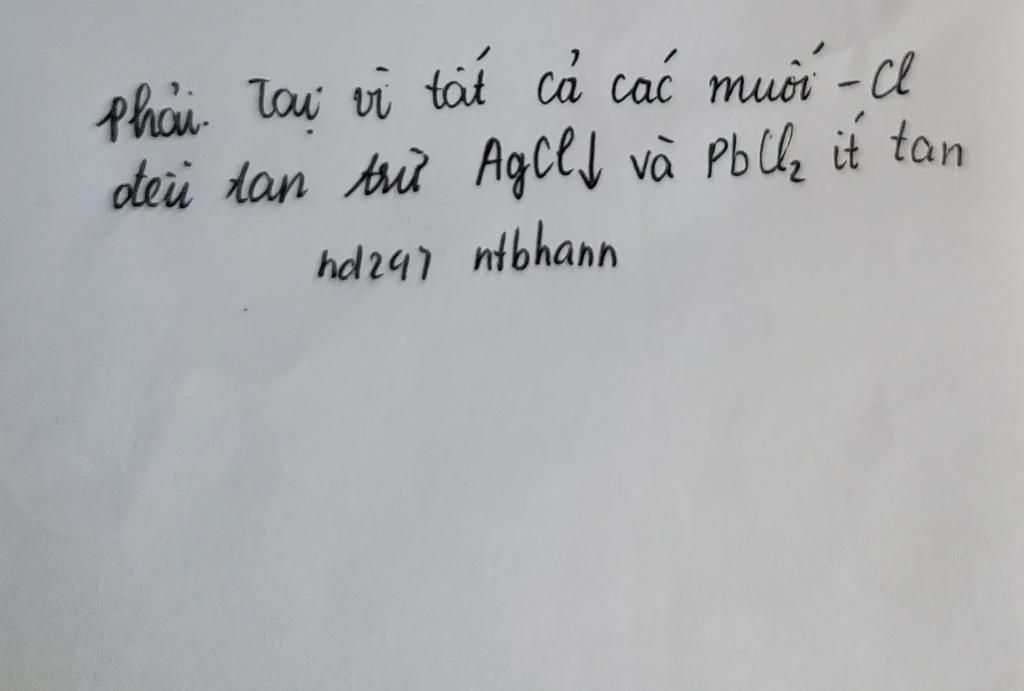 phải. Tại vì tất cả các muối -Cl
đều tan trừ AgCl↓ và PbCl₂ ít tan
hd297 ntbhann